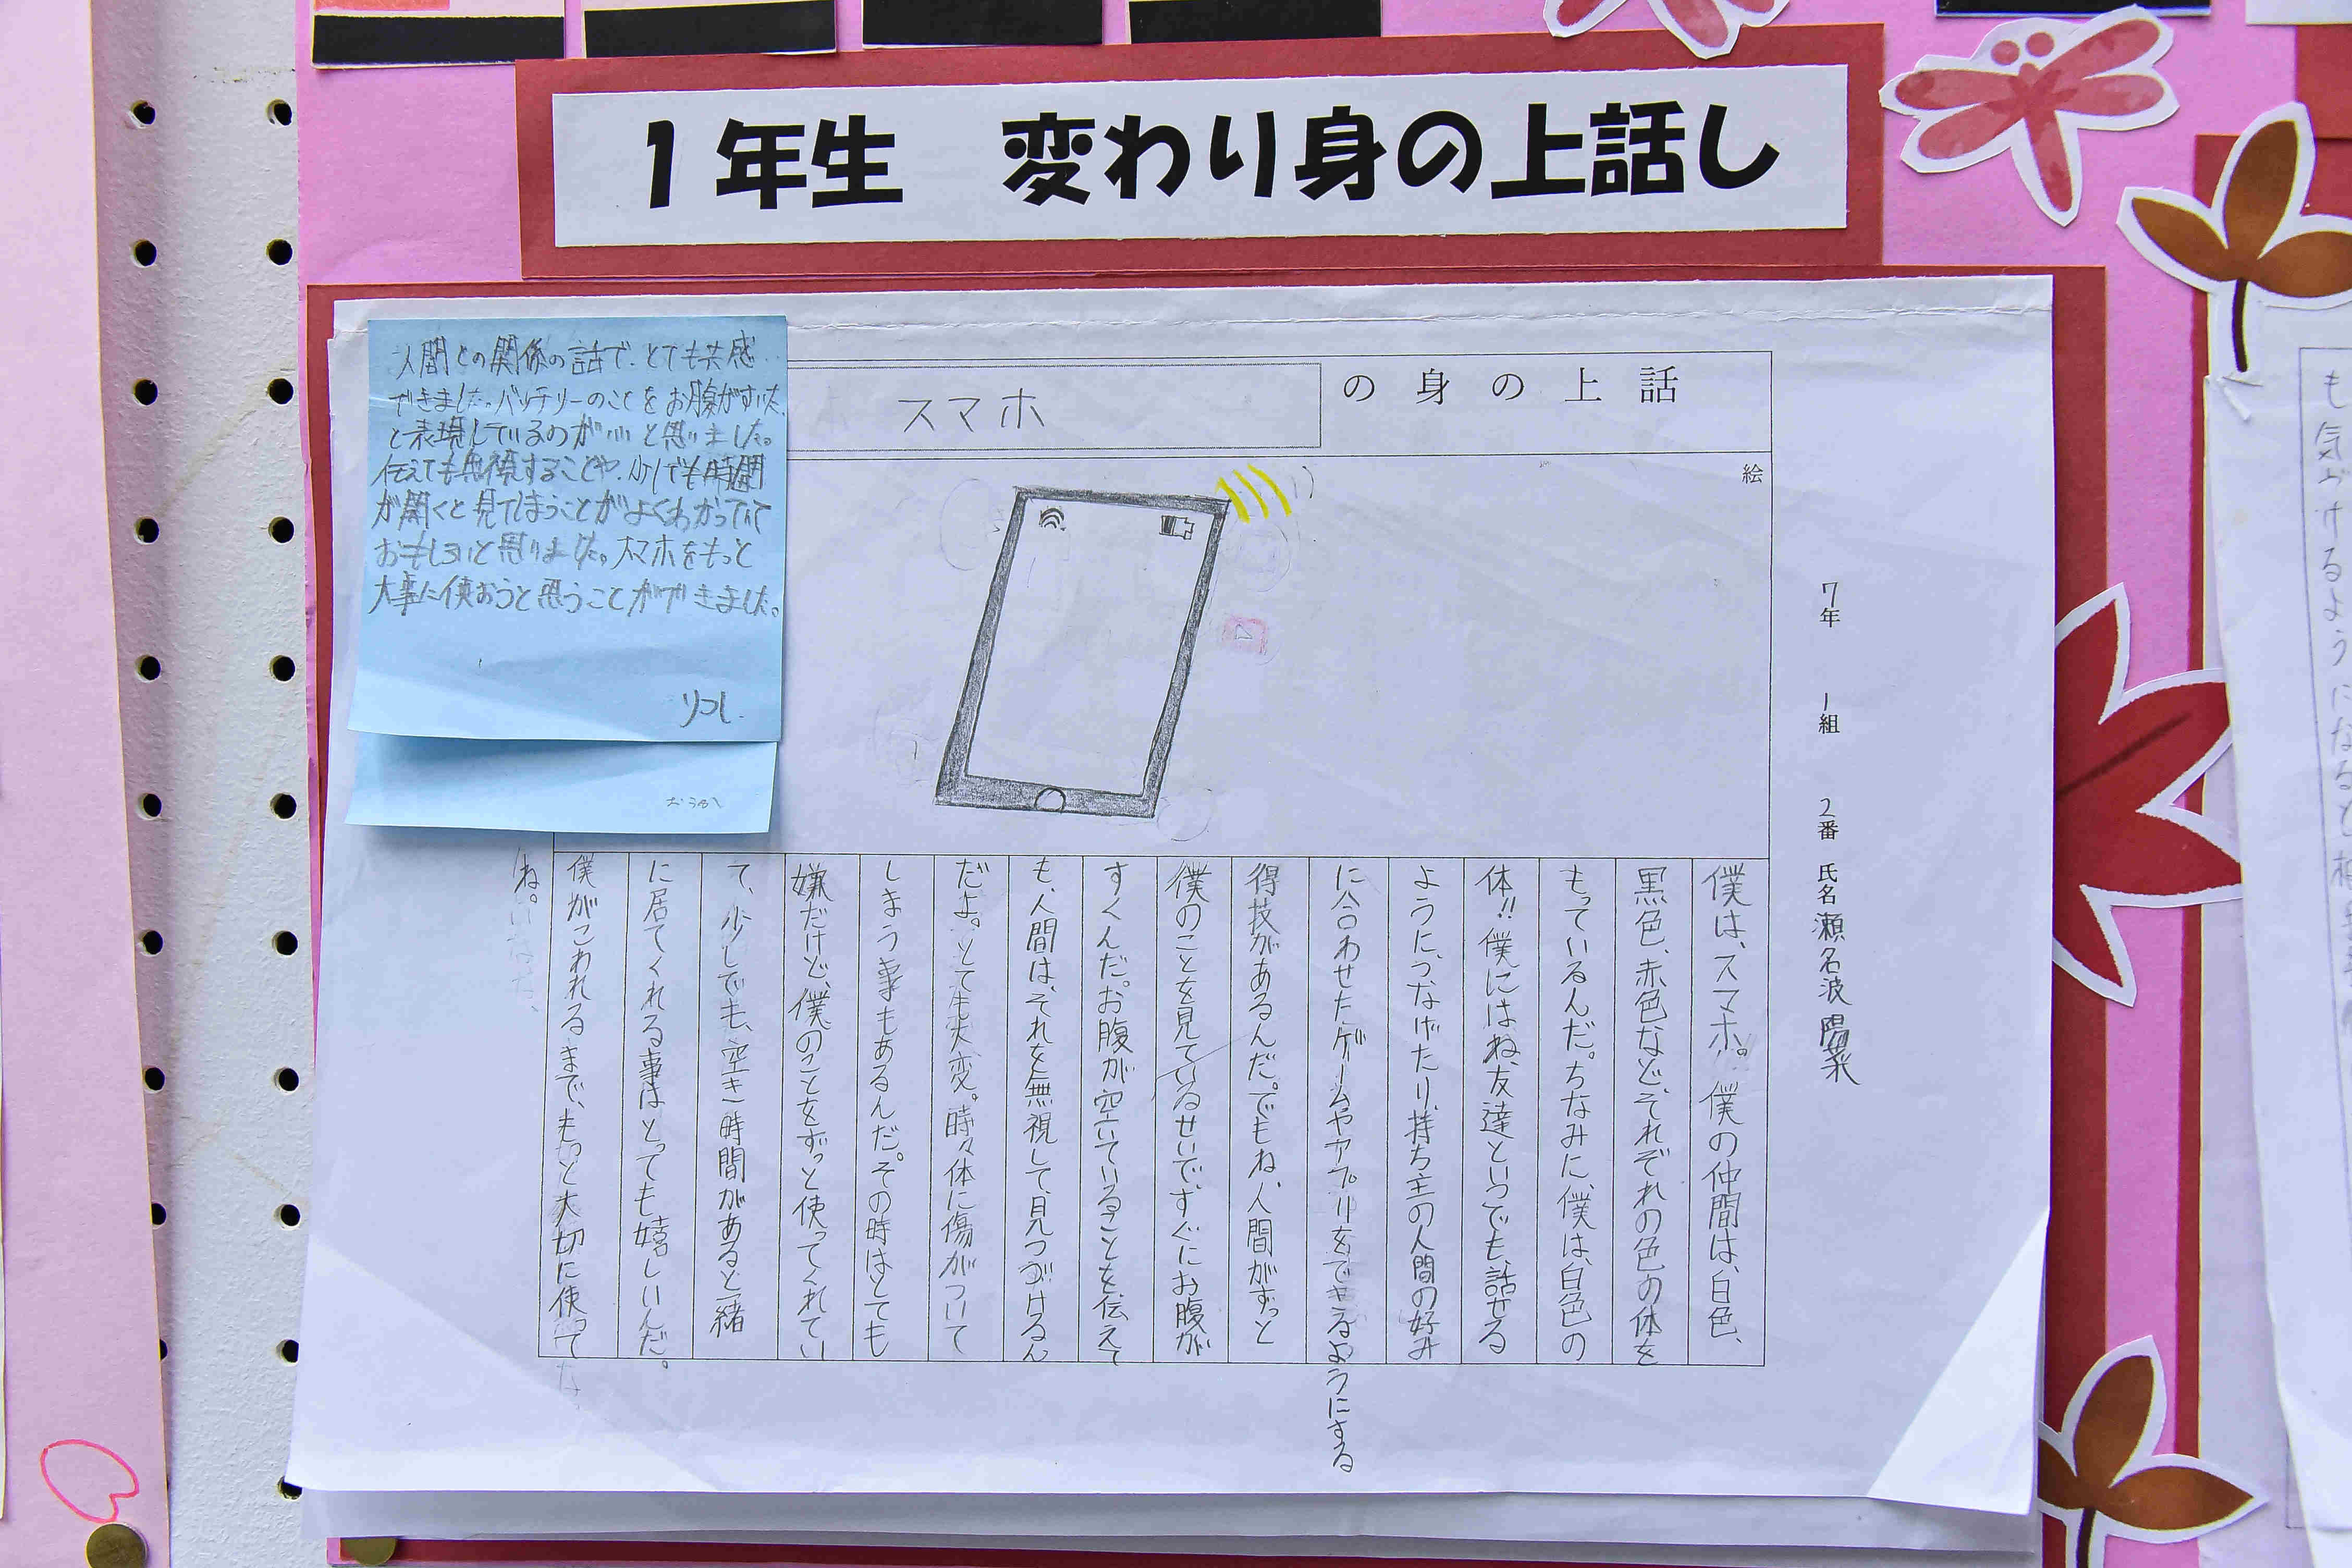 1年生　変わり身の上話し
スマホ
の身の上話
絵
7年　1組　2番　氏名 瀬名波 陽菜
僕は、スマホ。僕の仲間は、白色、
黒色、赤色など、それぞれの色の体を
もっているんだ。ちなみに、僕は、白色の
体!!僕にはね、友達といつでも、話せる
ように、つなげたり、持ち主の人間の好み
に合わせたゲームやアプリをできるようにする
得技があるんだ。でもね、人間がずっと
僕のことを見ているせいで、すぐにお腹が
すくんだ。お腹が空いていることを、伝えて
も、人間は、それを無視して、見つづけるん
だよ。とても大変。時々体に傷がついて
しまう事もあるんだ。その時はとても
嫌だけど、僕のことをずっと使ってくれてい
て、少しでも、空き時間があると一緒
に居てくれる事はとっても嬉しいんだ。
僕がこわれるまで、もっと大切に使ってな
ね。
人間との関係の話で、とても共感
できました。バッテリーのことをお腹がすいた
と表現しているのがいいと思いました。
伝えても無視することや、少しでも時間
が開くと見てしまうことがよくわかってて
おもしろいと思いました。スマホをもっと
大事に使おうと思うことができました。
も気づけるようになると